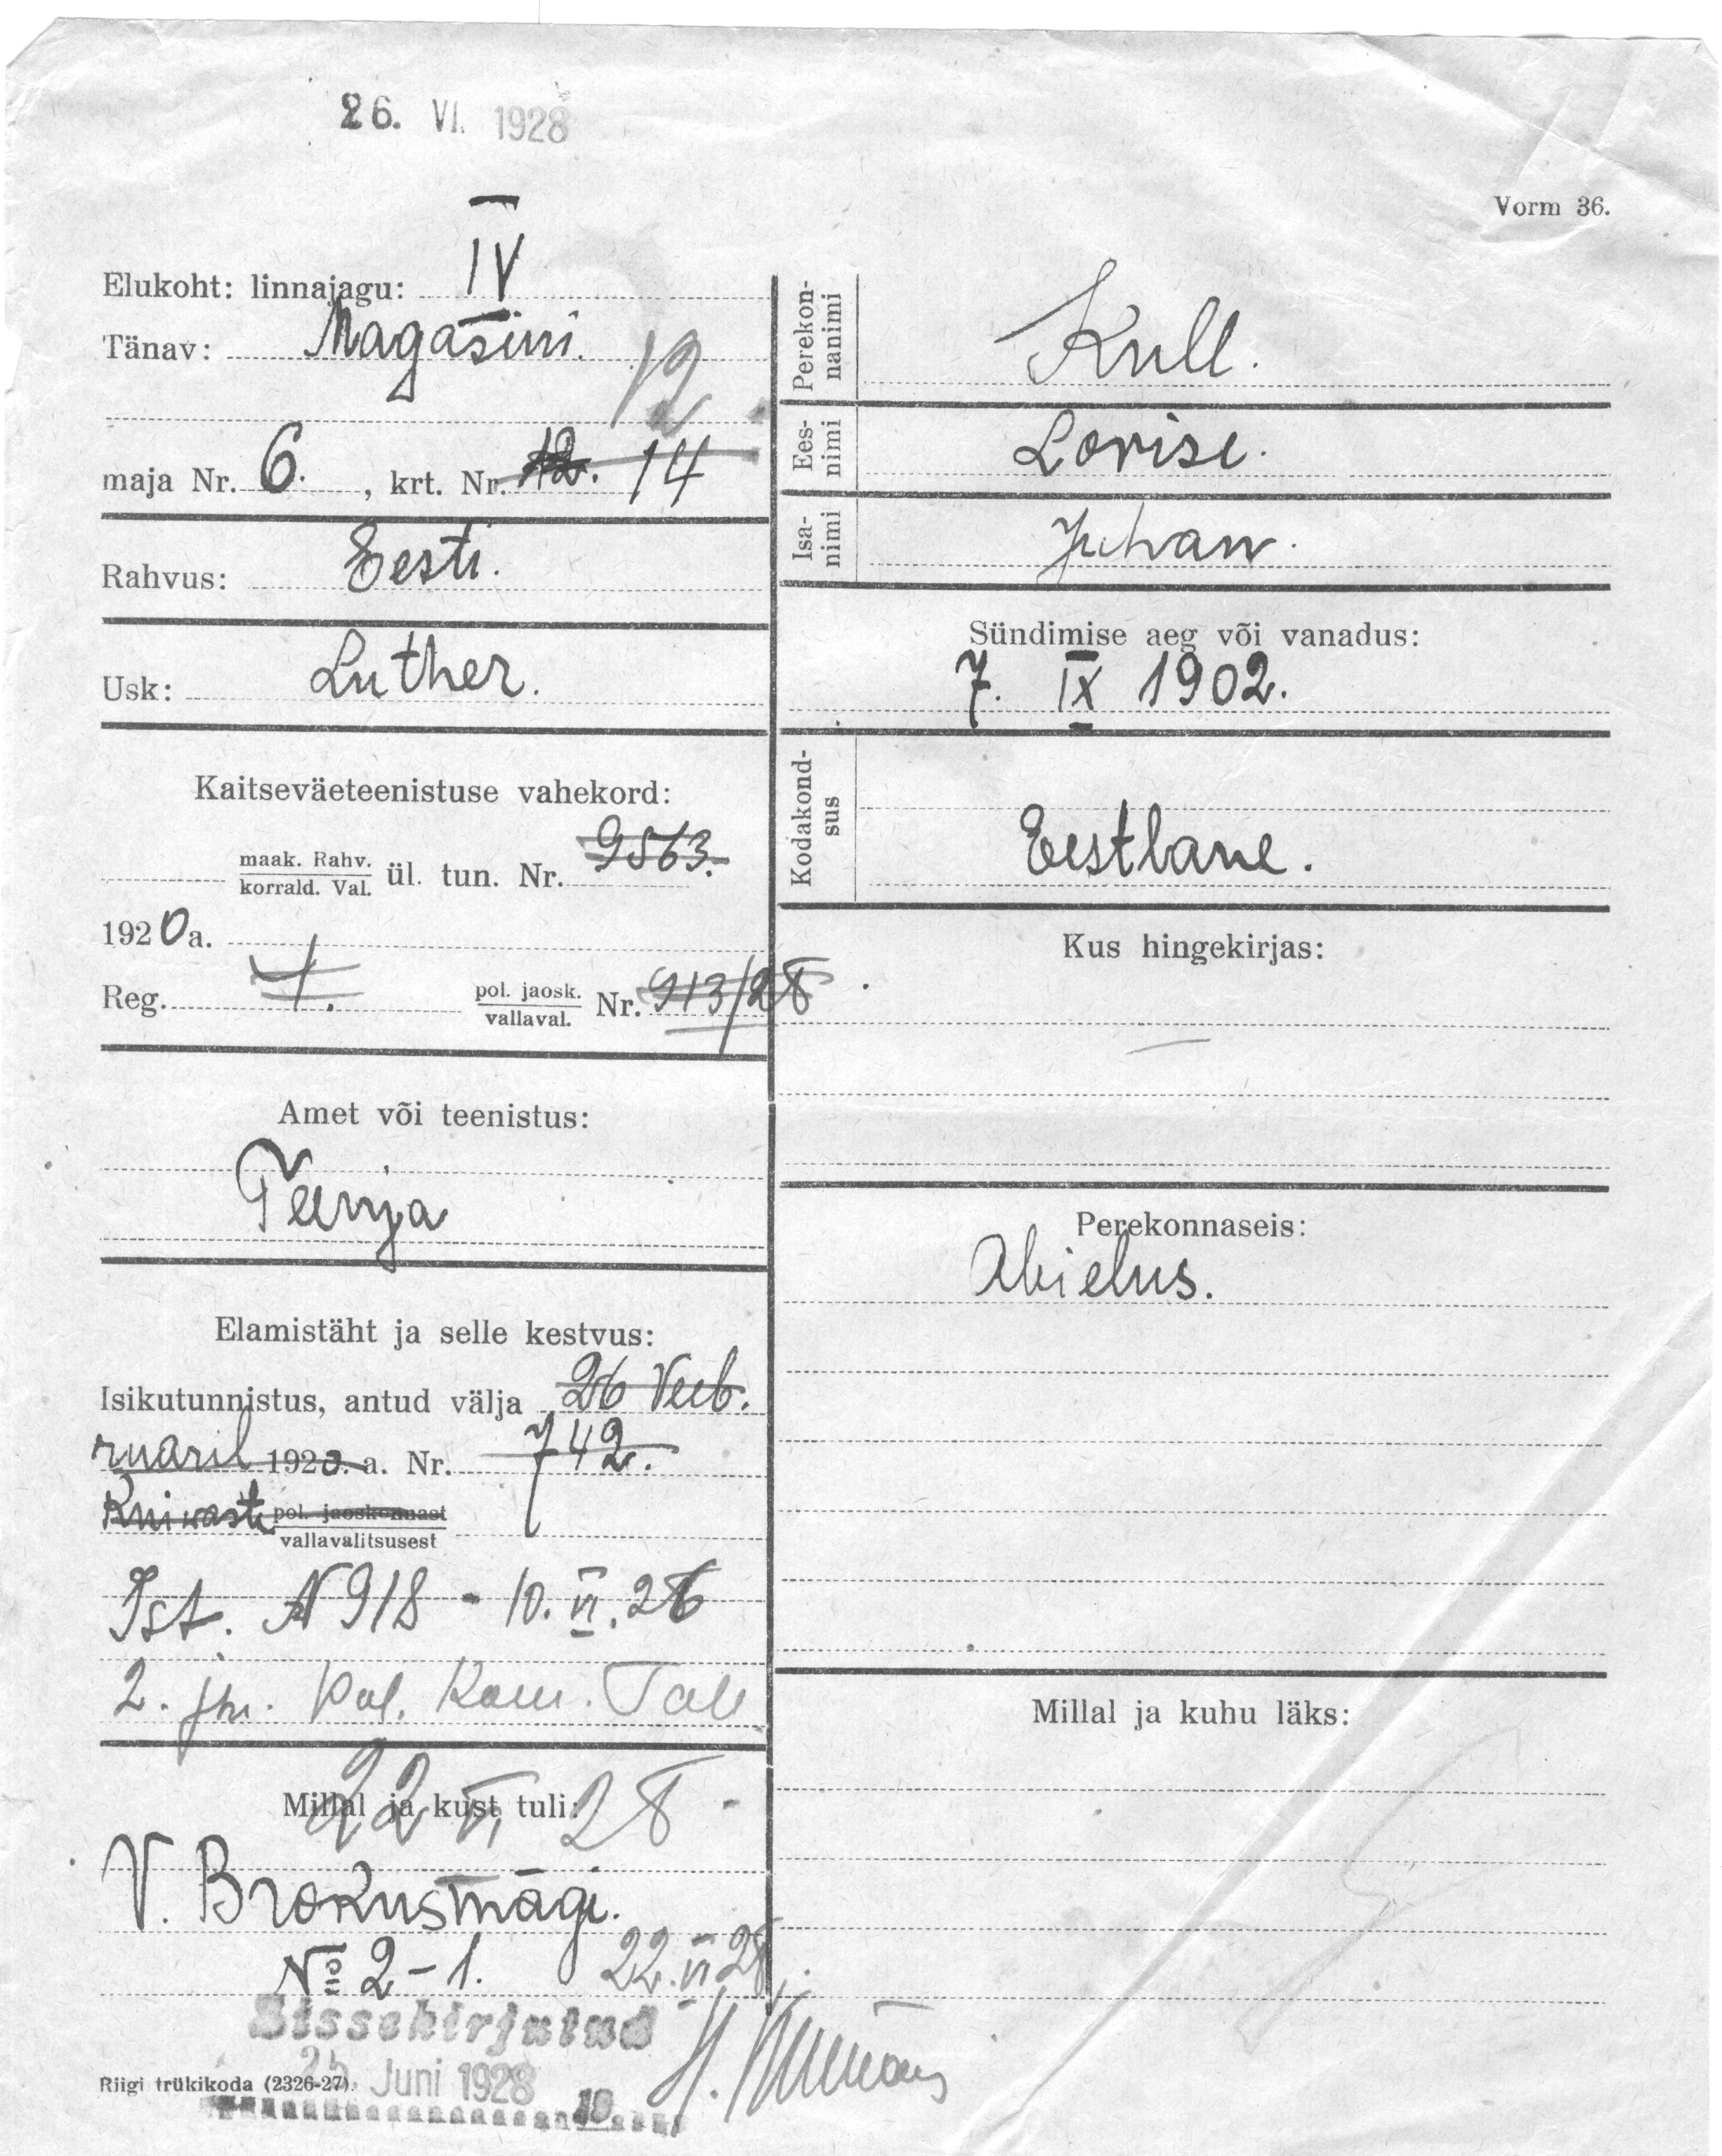 26. VI. 1928
Vorm 36.
Elukoht: linnajagu: IV
Tänav: Magasini. 12
maja Nr. 6., krt. Nr. 12. 14
Rahvus: Eesti.
Usk: Luther.
Kaitseväeteenistuse vahekord:
maak. Rahv.
korrald. Val. ül. tun. Nr. 9563.
1920a.
Reg. pol. jaosk.
vallaval. Nr. 913/28
Amet või teenistus:
Teenija
Elamistäht ja selle kestvus:
Isikutunnistus, antud välja 26 Veeb.
ruaril 1920. a. Nr. 742.
pol. jaoskonnast
vallavalitsusest
Ist. N 918 - 10. VI. 26
2. jsk. Pol. Kom. Tall
Millal ja kust tuli:
22 VI, 28
V. Brokusmägi.
№ 2-1. 22.VI 28.
Sissekirjutud
25 Juni 1928
Riigi trükikoda (2326-27).
Perekon-
nanimi
Kull.
Ees-
nimi
Lovise.
Isa-
nimi
Juhan.
Sündimise aeg või vanadus:
7. IX 1902.
Kodakond-
sus
Eestlane.
Kus hingekirjas:
Perekonnaseis:
Abielus.
Millal ja kuhu läks: